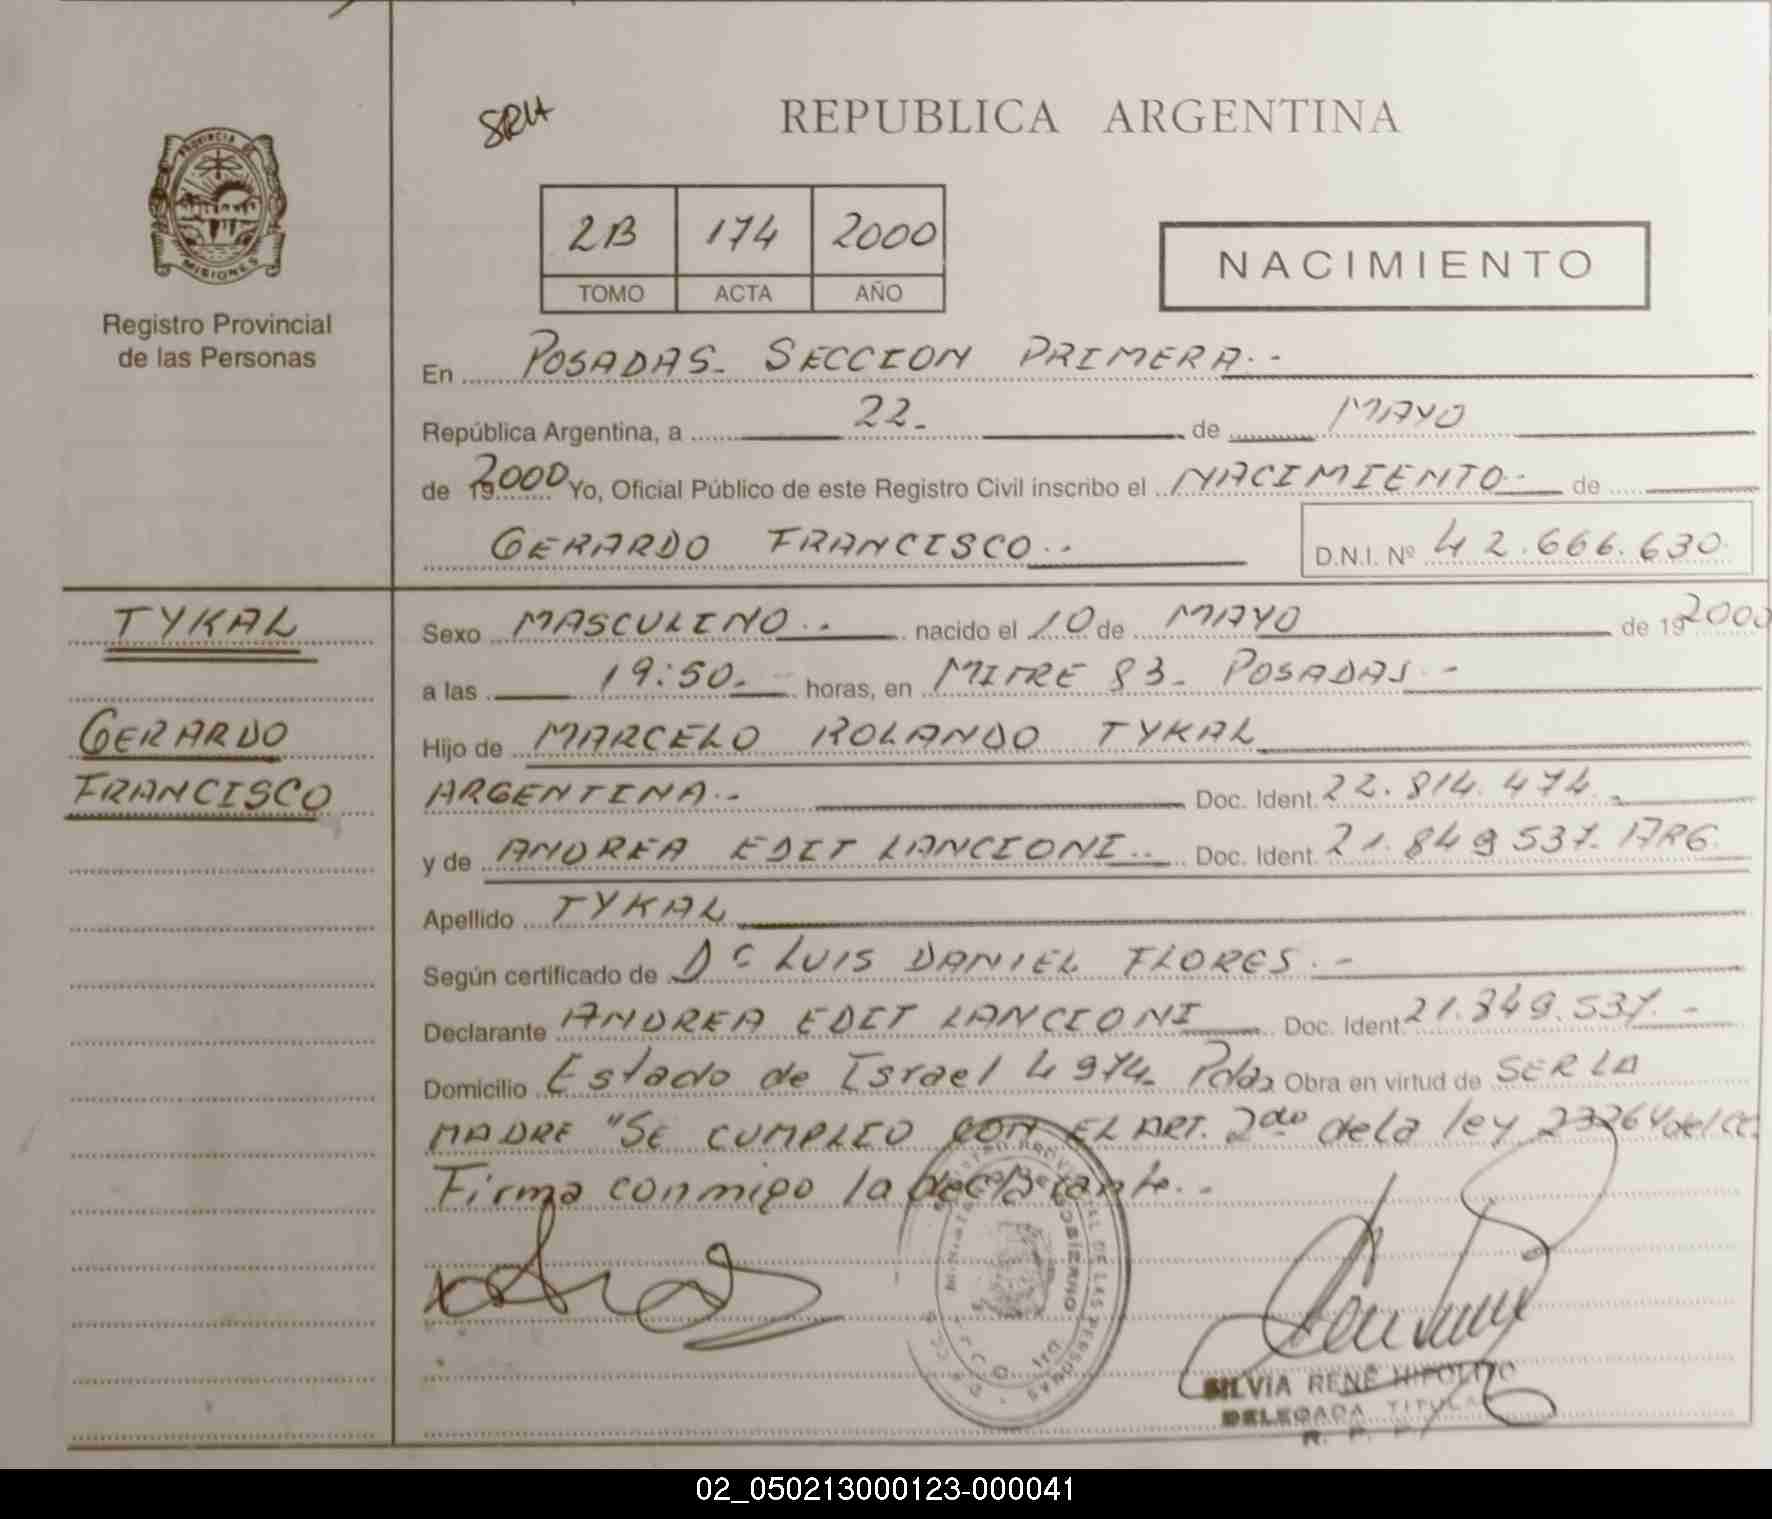 SRH
REPUBLICA ARGENTINA
PROVINCIA DE
MISIONES
Registro Provincial
de las Personas
2B 174 2000
TOMO ACTA AÑO
NACIMIENTO
En POSADAS- SECCION PRIMERA.-
República Argentina, a 22- de MAYO
de 2000 Yo, Oficial Público de este Registro Civil inscribo el NACIMIENTO- de
GERARDO FRANCISCO.-
D.N.I. Nº 42.666.630.
TYKAL
GERARDO
FRANCISCO
Sexo MASCULINO.- nacido el 10 de MAYO de 192000
a las 19:50.- horas, en MITRE 83- POSADAS.-
Hijo de MARCELO ROLANDO TYKAL
ARGENTINA.- Doc. Ident. 22.814.474.-
y de ANDREA EDIT LANCIONI.- Doc. Ident. 21.849.537. ARG.
Apellido TYKAL
Según certificado de Dr LUIS DANIEL FLORES.-
Declarante ANDREA EDIT LANCIONI Doc. Ident. 21.849.537.-
Domicilio Estado de Israel 4974- Pdas Obra en virtud de SER LA
MADRE "SE CUMPLIO CON EL ART. 2do de la ley 23264 del CC.
Firma conmigo la declarante.-
SILVIA RENÉ HIPOLITO
DELEGADA TITULAR
02_050213000123-000041